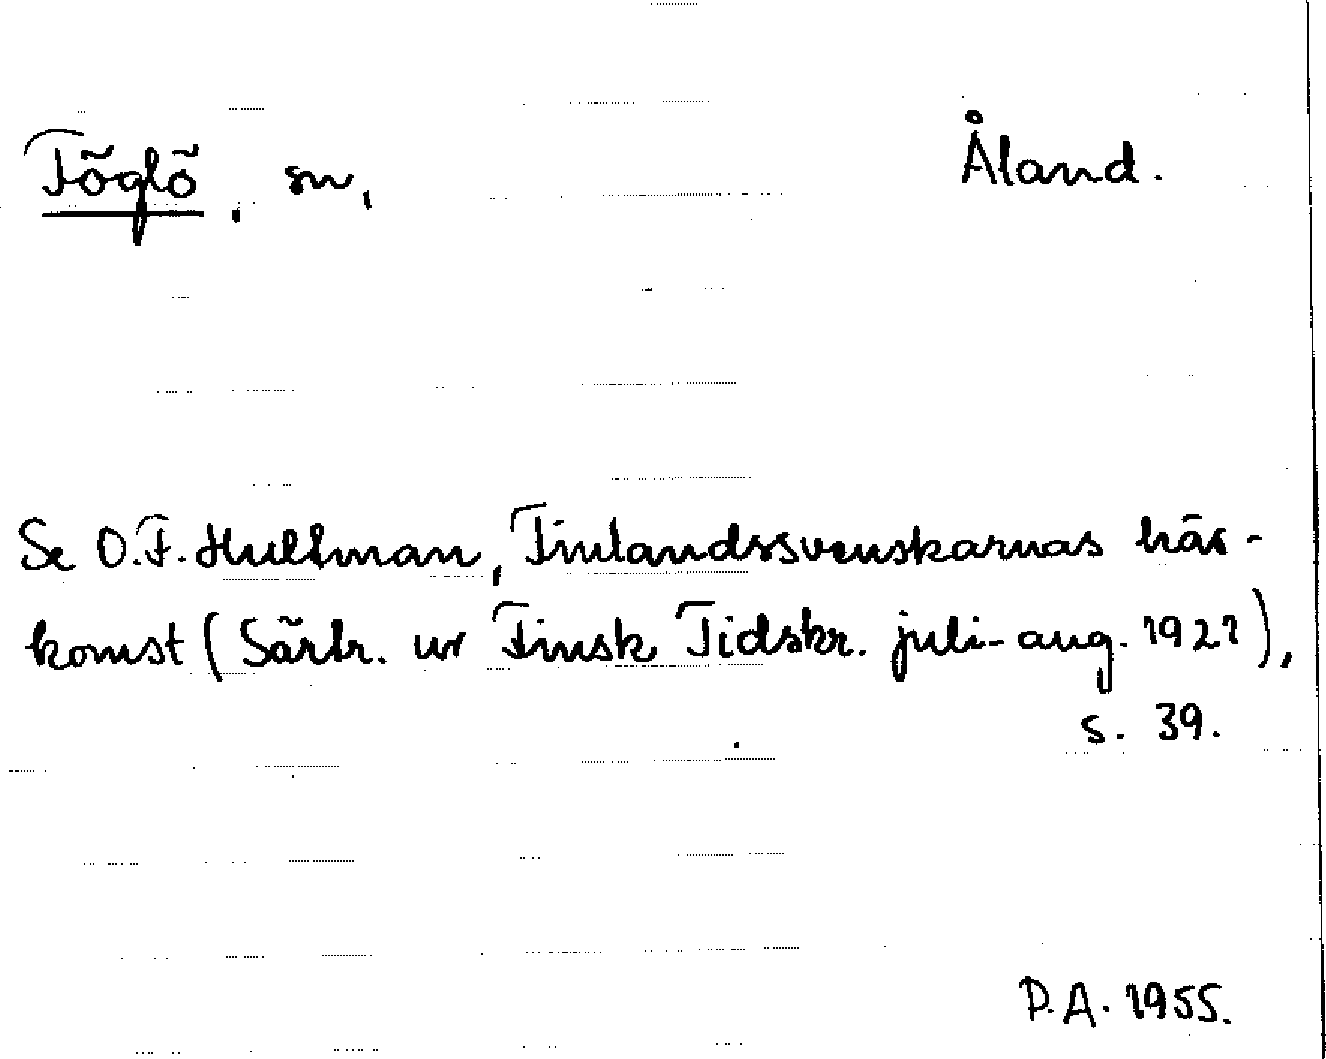 Föglö, sn, Åland.
Se O.F. Hultman, Finlandssvenskarnas här-
komst (Särtr. ur Finsk Tidskr. juli-aug. 1921),
s. 39.
P.A. 1955.